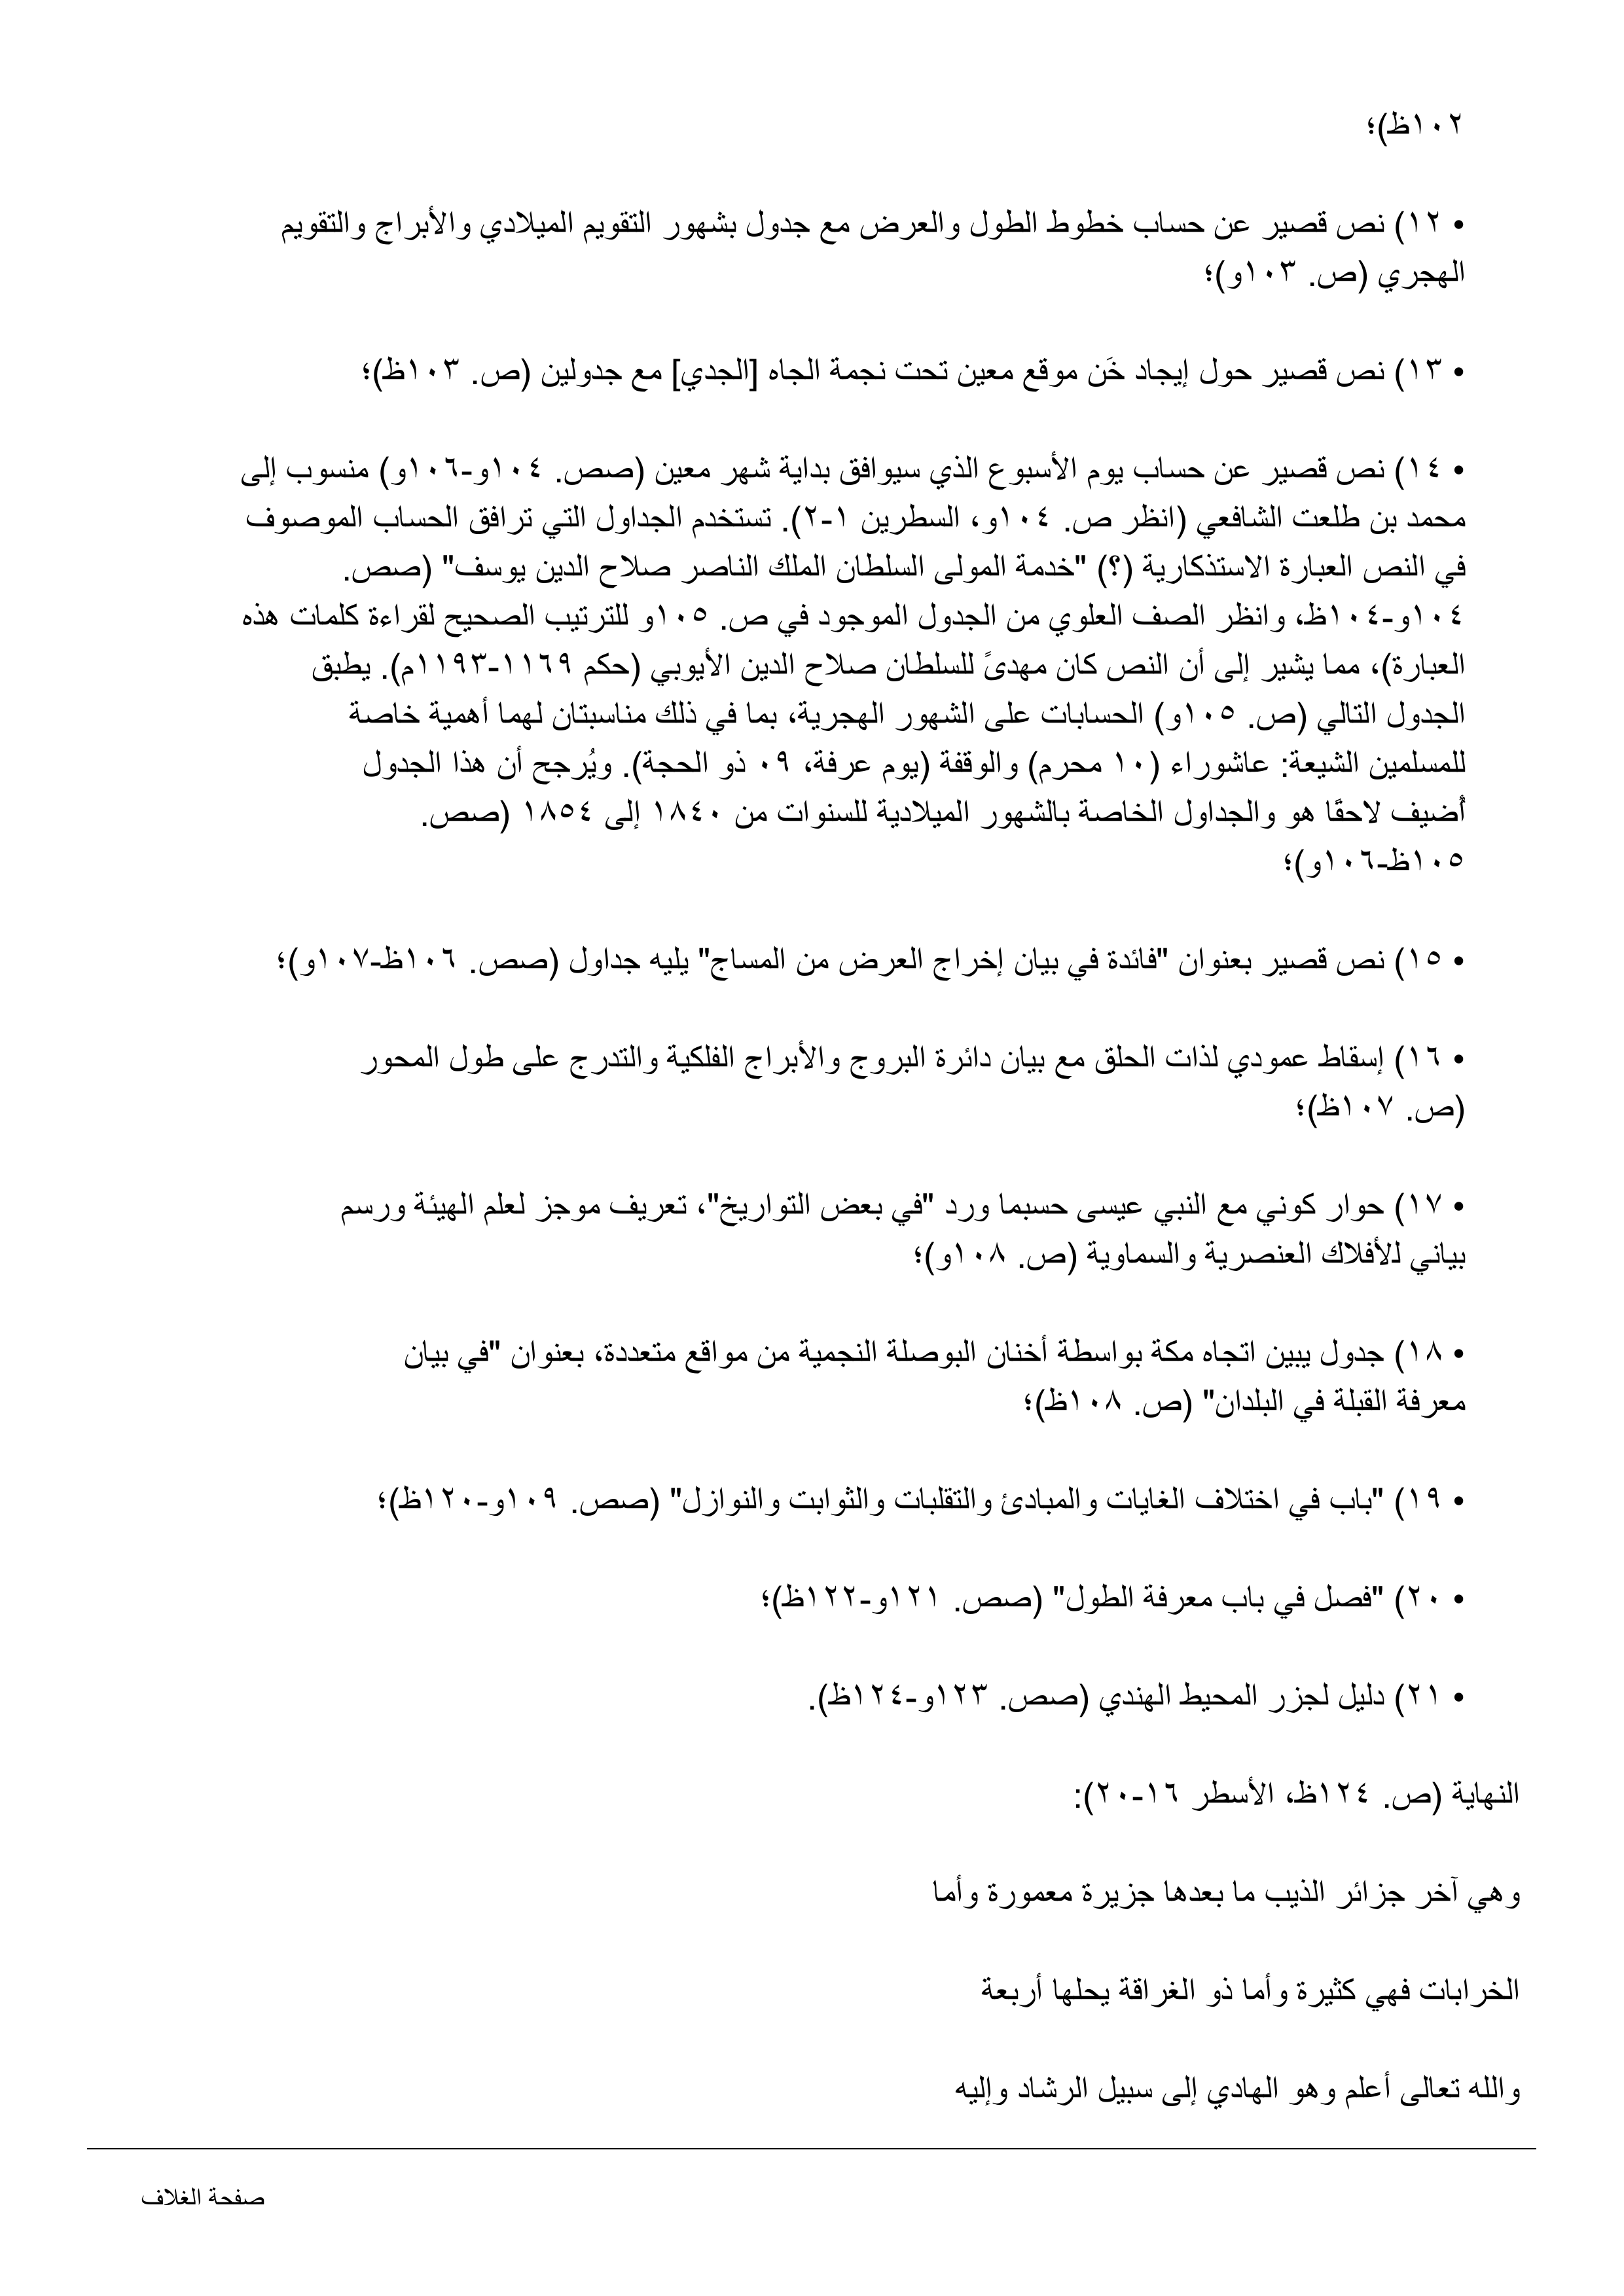 ١٠٢ظ)؛
• ١٢) نص قصير عن حساب خطوط الطول والعرض مع جدول بشهور التقويم الميلادي والأبراج والتقويم
الهجري (ص. ١٠٣و)؛
• ١٣) نص قصير حول إيجاد خَن موقع معين تحت نجمة الجاه [الجدي] مع جدولين (ص. ١٠٣ظ)؛
• ١٤) نص قصير عن حساب يوم الأسبوع الذي سيوافق بداية شهر معين (صص. ١٠٤و-١٠٦و) منسوب إلى
محمد بن طلعت الشافعي (انظر ص. ١٠٤و، السطرين ١-٢). تستخدم الجداول التي ترافق الحساب الموصوف
في النص العبارة الاستذكارية (؟) "خدمة المولى السلطان الملك الناصر صلاح الدين يوسف" (صص.
١٠٤و-١٠٤ظ، وانظر الصف العلوي من الجدول الموجود في ص. ١٠٥و للترتيب الصحيح لقراءة كلمات هذه
العبارة)، مما يشير إلى أن النص كان مهدىً للسلطان صلاح الدين الأيوبي (حكم ١١٦٩-١١٩٣م). يطبق
الجدول التالي (ص. ١٠٥و) الحسابات على الشهور الهجرية، بما في ذلك مناسبتان لهما أهمية خاصة
للمسلمين الشيعة: عاشوراء (١٠ محرم) والوقفة (يوم عرفة، ٠٩ ذو الحجة). ويُرجح أن هذا الجدول
أُضيف لاحقًا هو والجداول الخاصة بالشهور الميلادية للسنوات من ١٨٤٠ إلى ١٨٥٤ (صص.
١٠٥ظ-١٠٦و)؛
• ١٥) نص قصير بعنوان "فائدة في بيان إخراج العرض من المساج" يليه جداول (صص. ١٠٦ظ-١٠٧و)؛
• ١٦) إسقاط عمودي لذات الحلق مع بيان دائرة البروج والأبراج الفلكية والتدرج على طول المحور
(ص. ١٠٧ظ)؛
• ١٧) حوار كوني مع النبي عيسى حسبما ورد "في بعض التواريخ"، تعريف موجز لعلم الهيئة ورسم
بياني للأفلاك العنصرية والسماوية (ص. ١٠٨و)؛
• ١٨) جدول يبين اتجاه مكة بواسطة أخنان البوصلة النجمية من مواقع متعددة، بعنوان "في بيان
معرفة القبلة في البلدان" (ص. ١٠٨ظ)؛
• ١٩) "باب في اختلاف الغايات والمبادئ والتقلبات والثوابت والنوازل" (صص. ١٠٩و-١٢٠ظ)؛
• ٢٠) "فصل في باب معرفة الطول" (صص. ١٢١و-١٢٢ظ)؛
• ٢١) دليل لجزر المحيط الهندي (صص. ١٢٣و-١٢٤ظ).
النهاية (ص. ١٢٤ظ، الأسطر ١٦-٢٠):
وهي آخر جزائر الذيب ما بعدها جزيرة معمورة وأما
الخرابات فهي كثيرة وأما ذو الغراقة يحلها أربعة
والله تعالى أعلم وهو الهادي إلى سبيل الرشاد وإليه
صفحة الغلاف